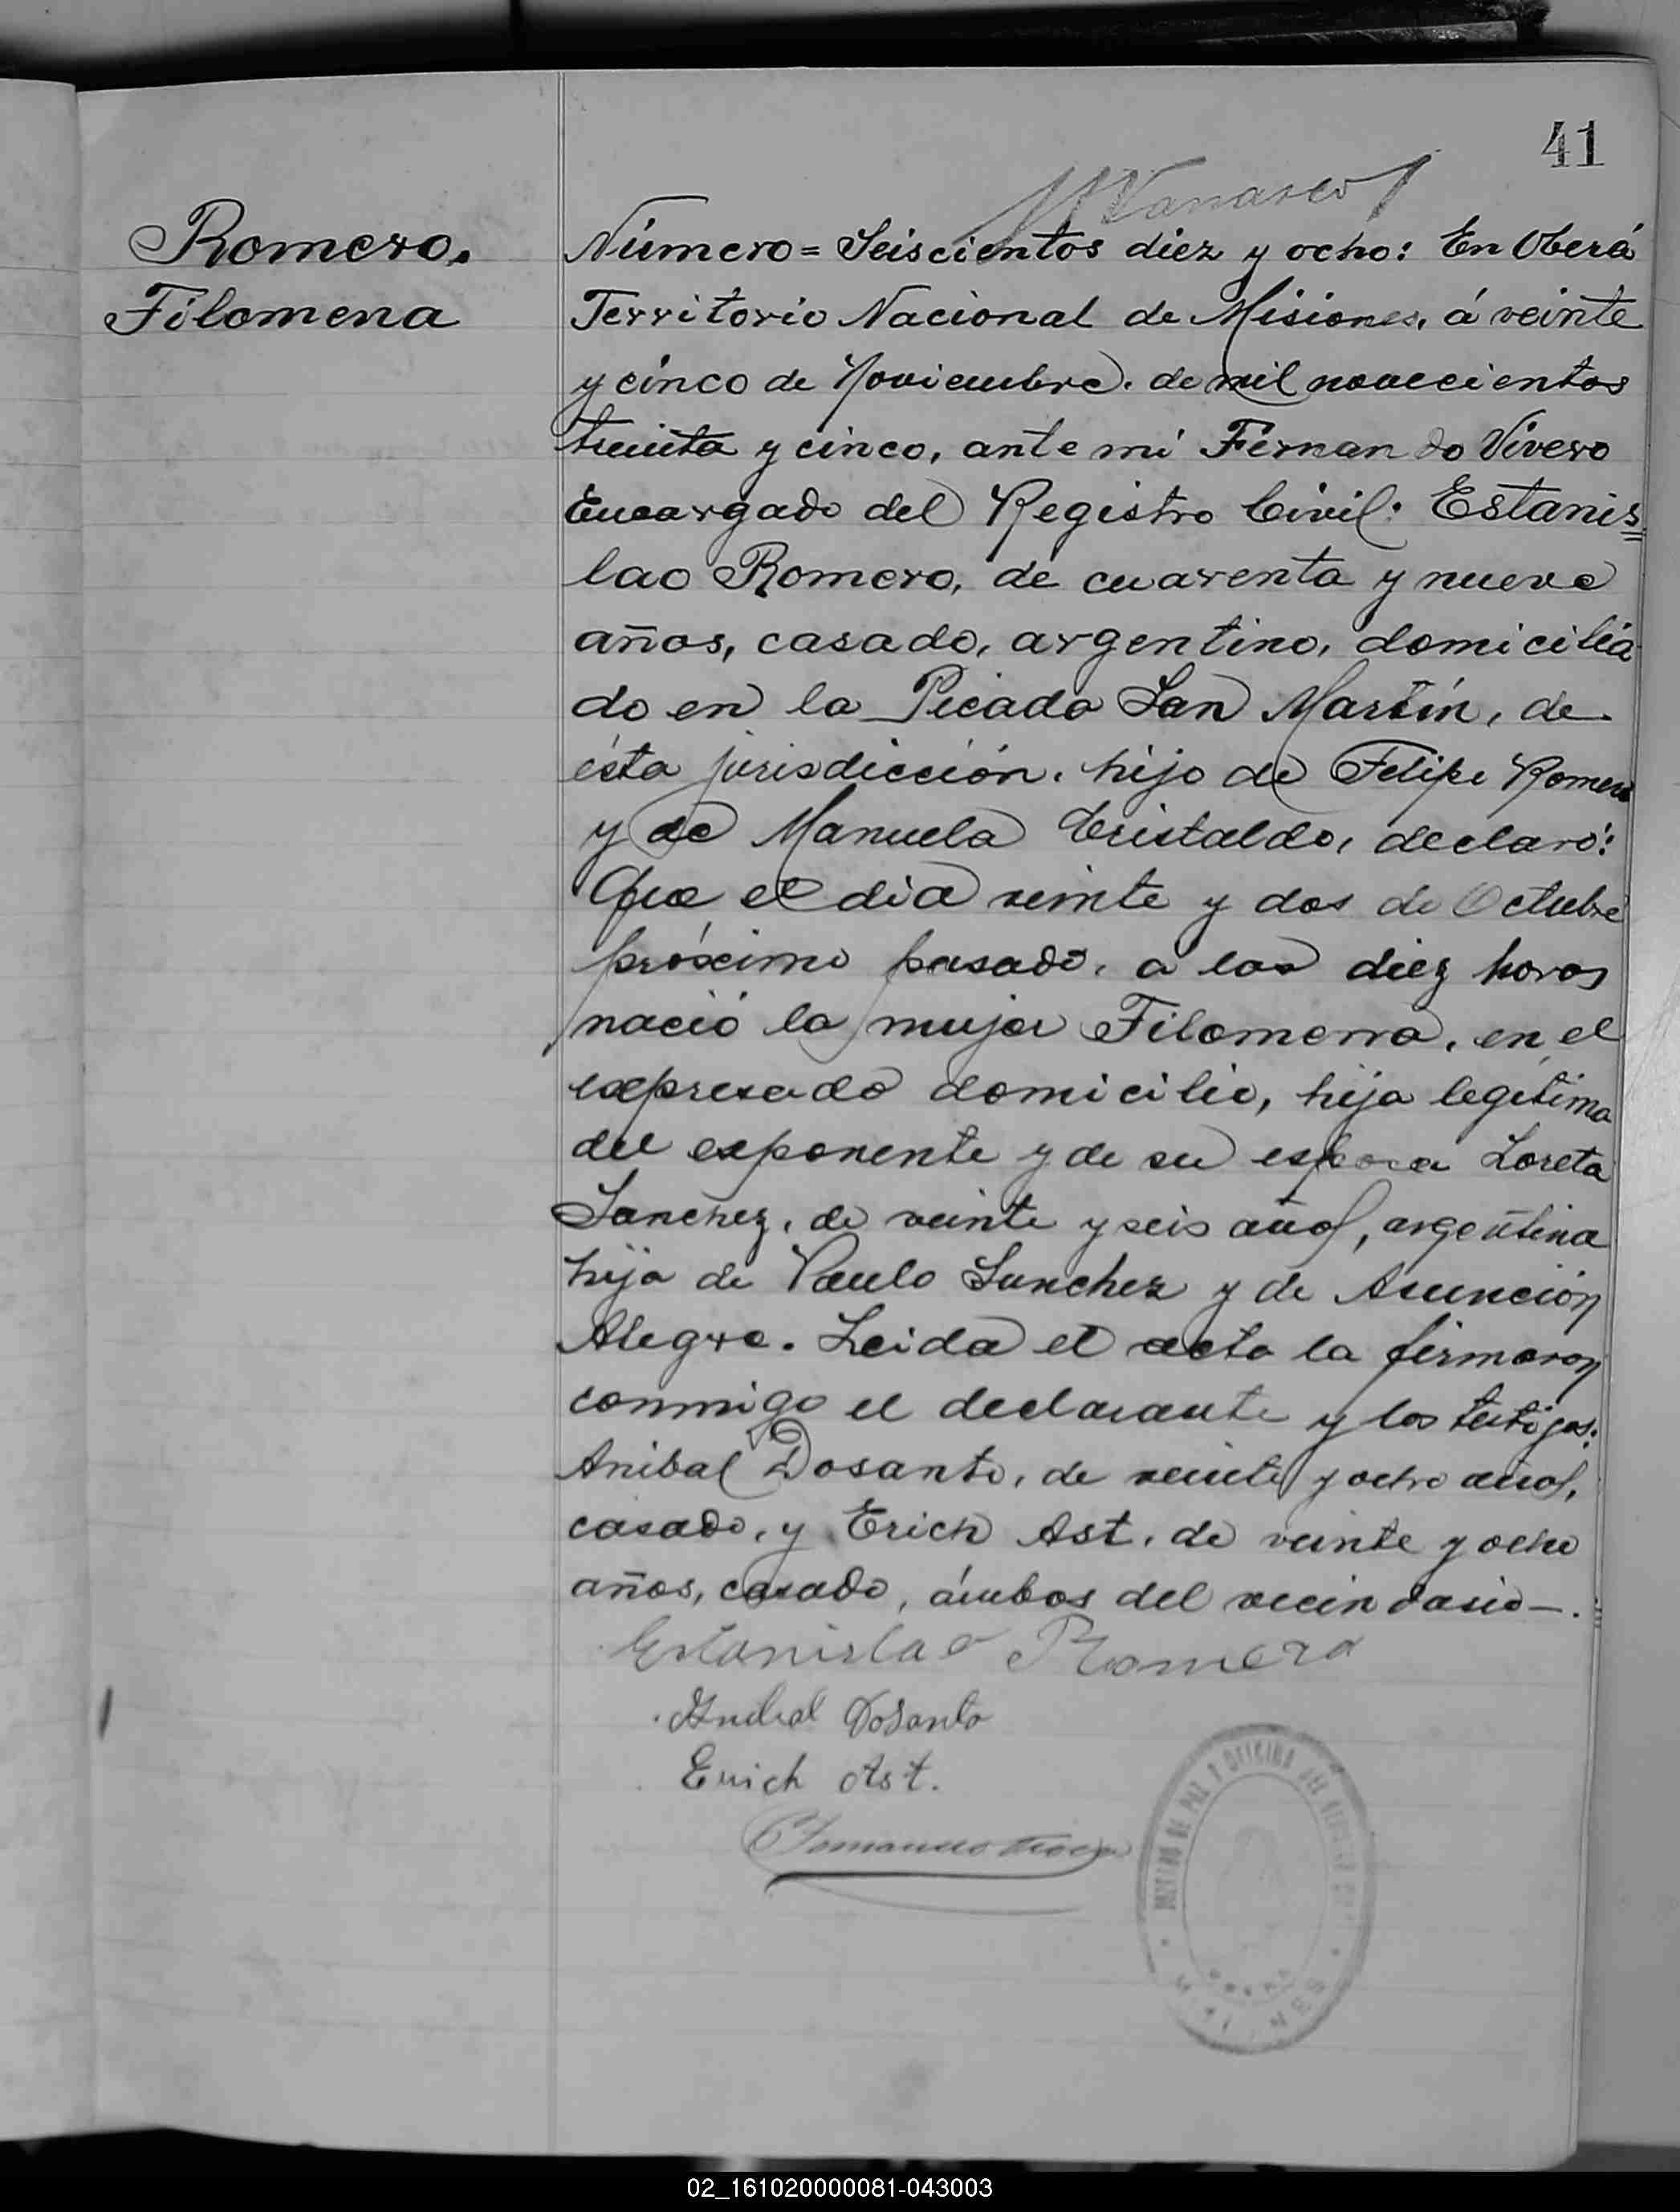 41
Romero.
Filomena
Número = Seiscientos diez y ocho: En Oberá
Territorio Nacional de Misiones, á veinte
y cinco de Noviembre. de mil novecientos
treinta y cinco, ante mi Fernando Vivero
Encargado del Registro Civil: Estanis=
lao Romero, de cuarenta y nueve
años, casado, argentino, domicilia
do en la Picada San Martín, de
ésta jurisdicción. hijo de Felipe Romero
y de Manuela Cristaldo, declaró:
Que el dia veinte y dos de Octubre
próximo pasado, a las diez horas
nació la mujer Filomena, en el
expresado domicilio, hija legítima
del exponente y de su esposa Loreta
Sanchez, de veinte y seis años, argentina
hija de Paulo Sanchez y de Asunción
Alegre. Leida el acta la firmaron
conmigo el declarante y los testigos:
Anibal Dosanto, de veinte y ocho años,
casado, y Erich Ast. de veinte y ocho
años, casado, ámbos del vecindario —.
Estanislao Romero
Anibal Dosanto
Erich Ast.
JUZGADO DE PAZ Y OFICINA DEL REGISTRO CIVIL
OBERA
MISIONES
02_161020000081-043003